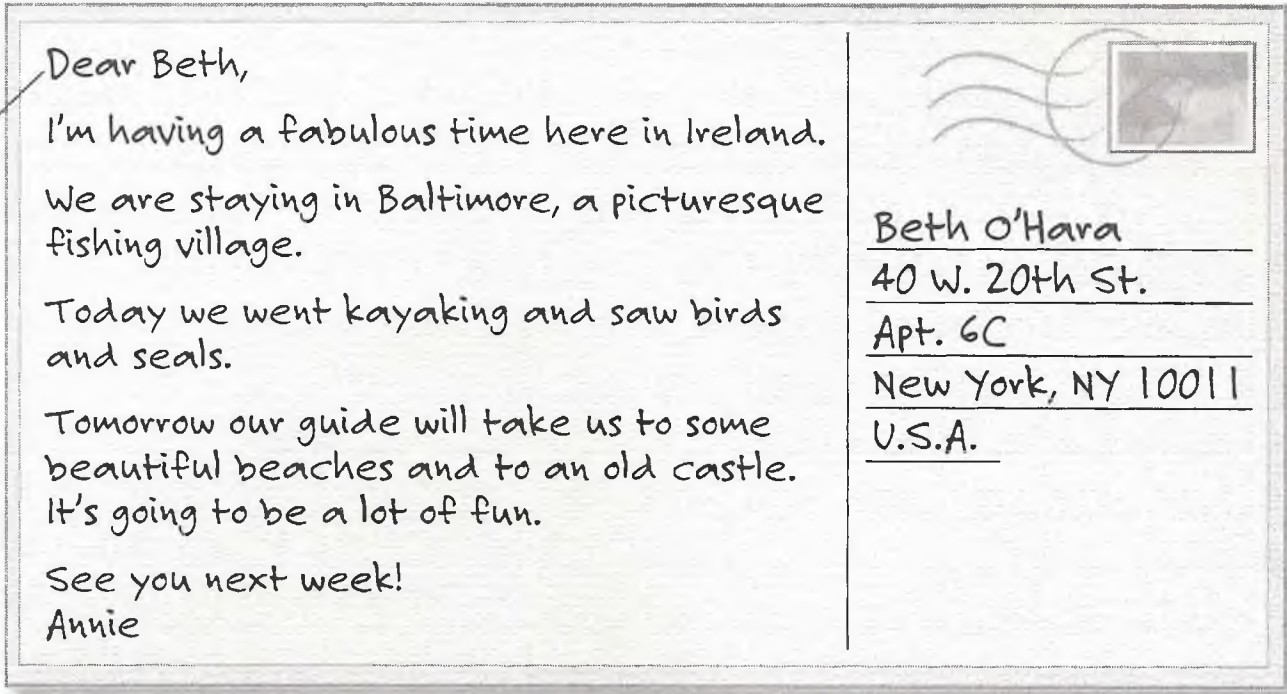 Dear Beth,
I'm having a fabulous time here in Ireland.
We are staying in Baltimore, a picturesque
fishing village.
Today we went kayaking and saw birds
and seals.
Tomorrow our guide will take us to some
beautiful beaches and to an old castle.
It's going to be a lot of fun.
See you next week!
Annie
Beth O'Hara
40 W. 20th St.
Apt. 6C
New York, NY 10011
U.S.A.